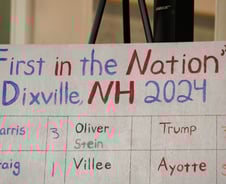 First in the Nation"
Dixville, NH 2024
arris 3 Oliver Stein Trump
raig 1 Villee Ayotte